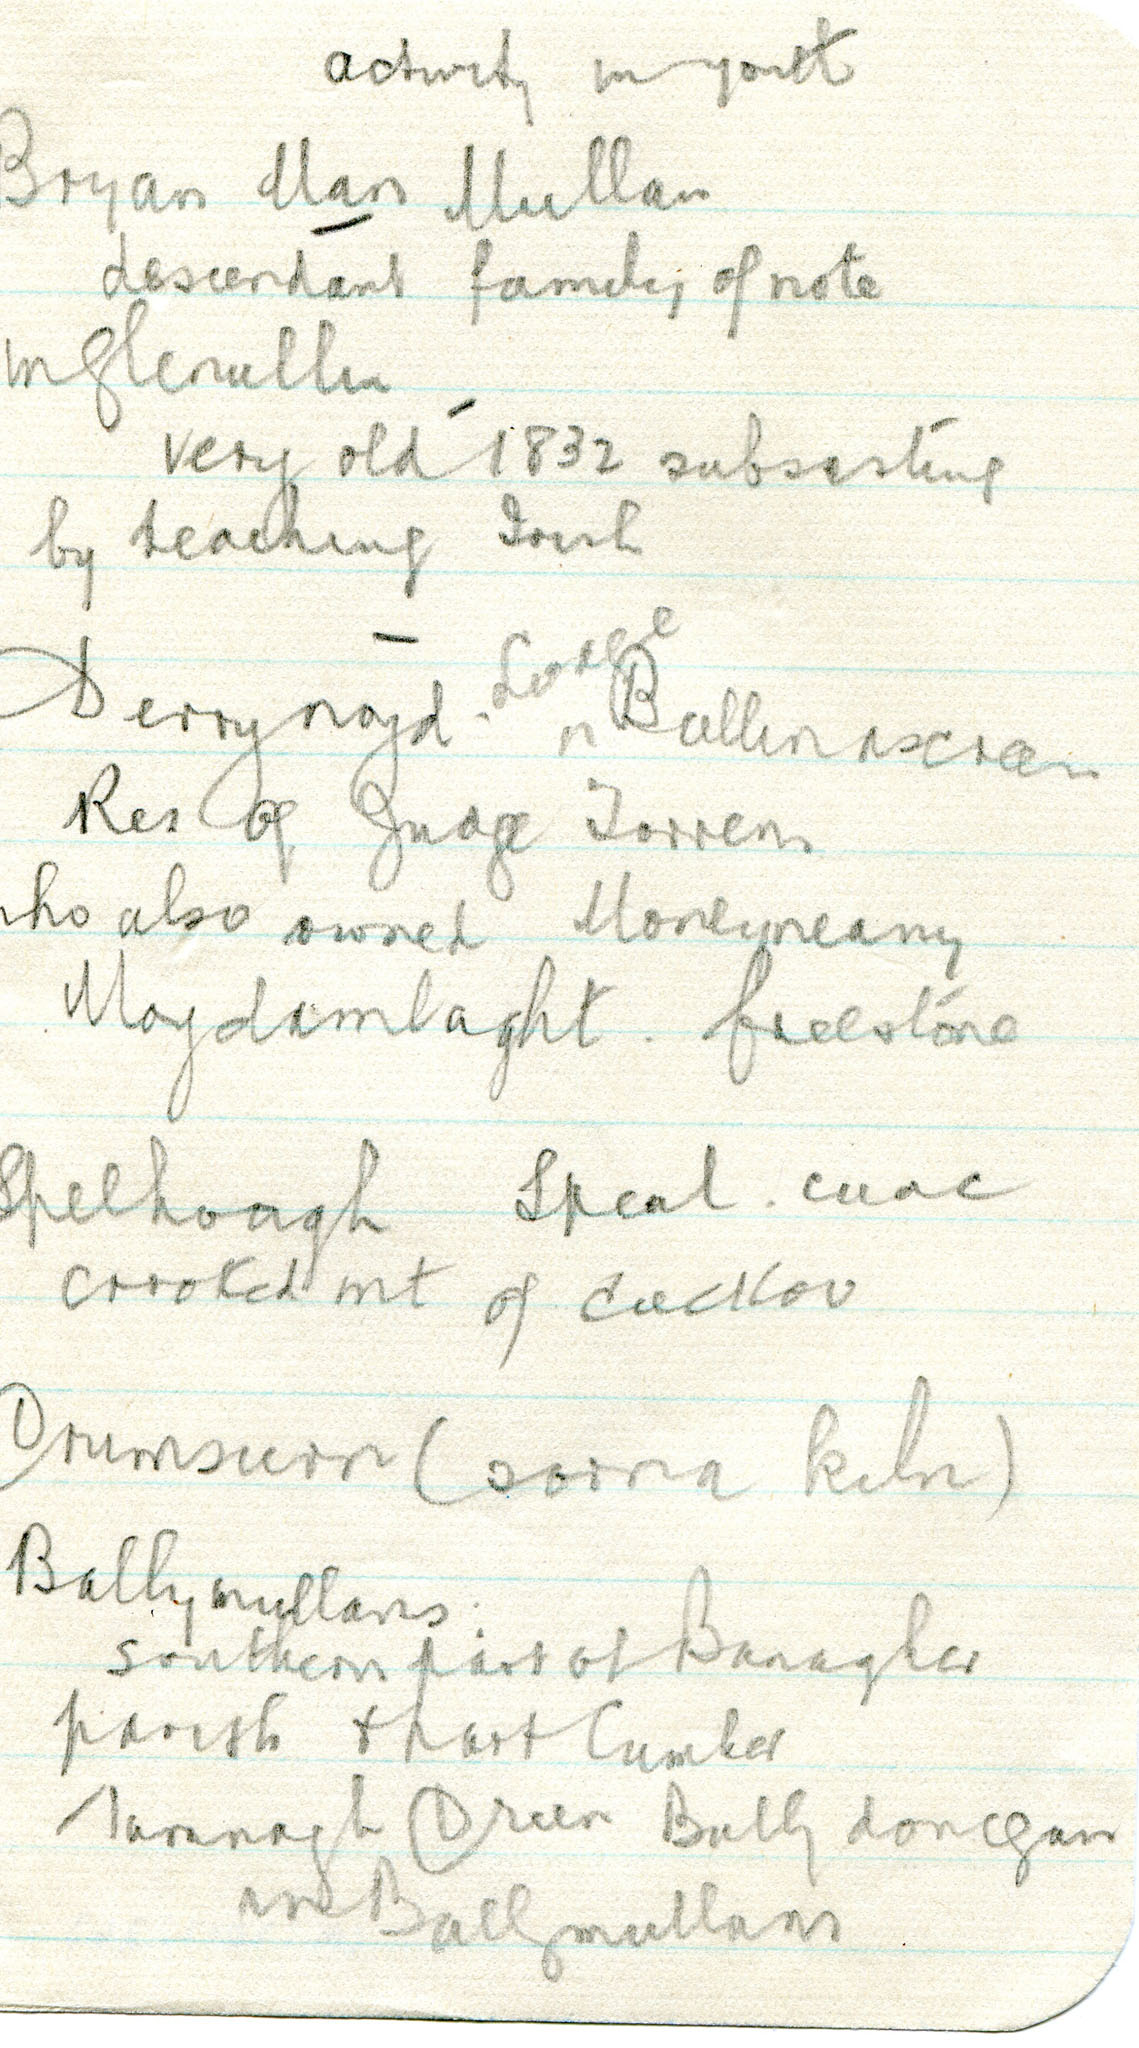 activity in youth
Bryan Mar Mullan
descendant family of note
in Glenullin
very old 1832 subsisting
by teaching Irish
Derrynoyd. Lodge
n Ballinascreen
Res of Judge Torrens
who also owned Moneyneany
Moydamlaght. freestone
Spelhoagh Speal. cuac
crooked mt of cuckoo
Drumsurn (sorna kiln)
Ballymullans.
southern part of Banagher
parish & part Cumber
Dreen Bally donegan
in Ballymullans